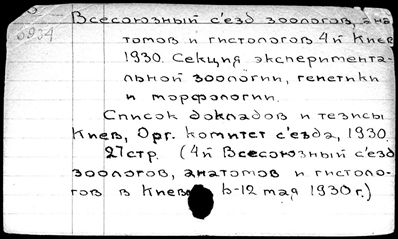 Всесоюзный с'езд зоологов, ана
6934
томов и гистологов 4й Киев
1930. Секция эксперимента-
льной зоологии, генетики
и морфологии.
Список докладов и тезисы
Киев, Орг. комитет с'езда, 1930.
27стр. (4й Всесоюзный с'езд
зоологов, анатомов и гистоло-
гов в Киеве 6-12 мая 1930г.)